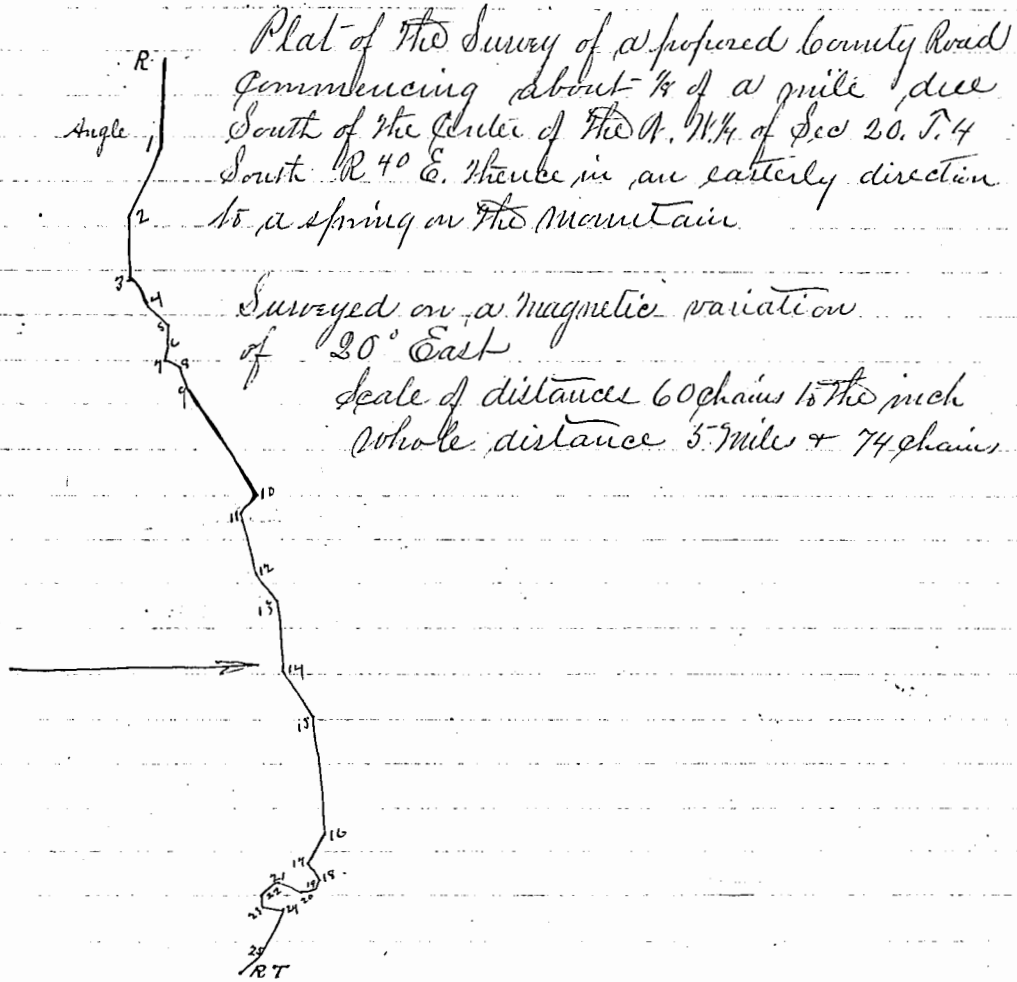 Plat of the Survey of a proposed County Road
Commencing about 1/8 of a mile due
South of the Center of the N. W. 1/4 of Sec 20. T. 4
South R 40 E. thence in an easterly direction
to a spring on the mountain
Surveyed on a Magnetic variation
of 20° East
Scale of distances 60 chains to the inch
whole distance 5 Mile & 74 chains
R.
Angle 1
2
3
4
5
6
7 8
9
10
11
12
13
14
15
16
17
18
19
20
21
22
23
24
25
R T